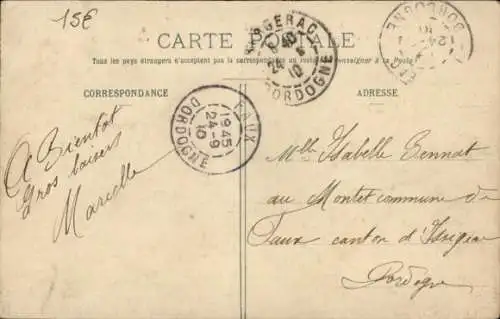 15€
CARTE POSTALE
Tous les pays étrangers n'acceptent pas la correspondance au recto se renseigner à la Poste
CORRESPONDANCE
ADRESSE
BERGERAC
24
10
DORDOGNE
DORDOGNE
24
10
FAUX
19 45
24-9
10
DORDOGNE
A Bientot
Gros baisers
Marcelle
Mlle Isabelle
au Montet commune de
Faux canton d'Issigeac
Dordogne